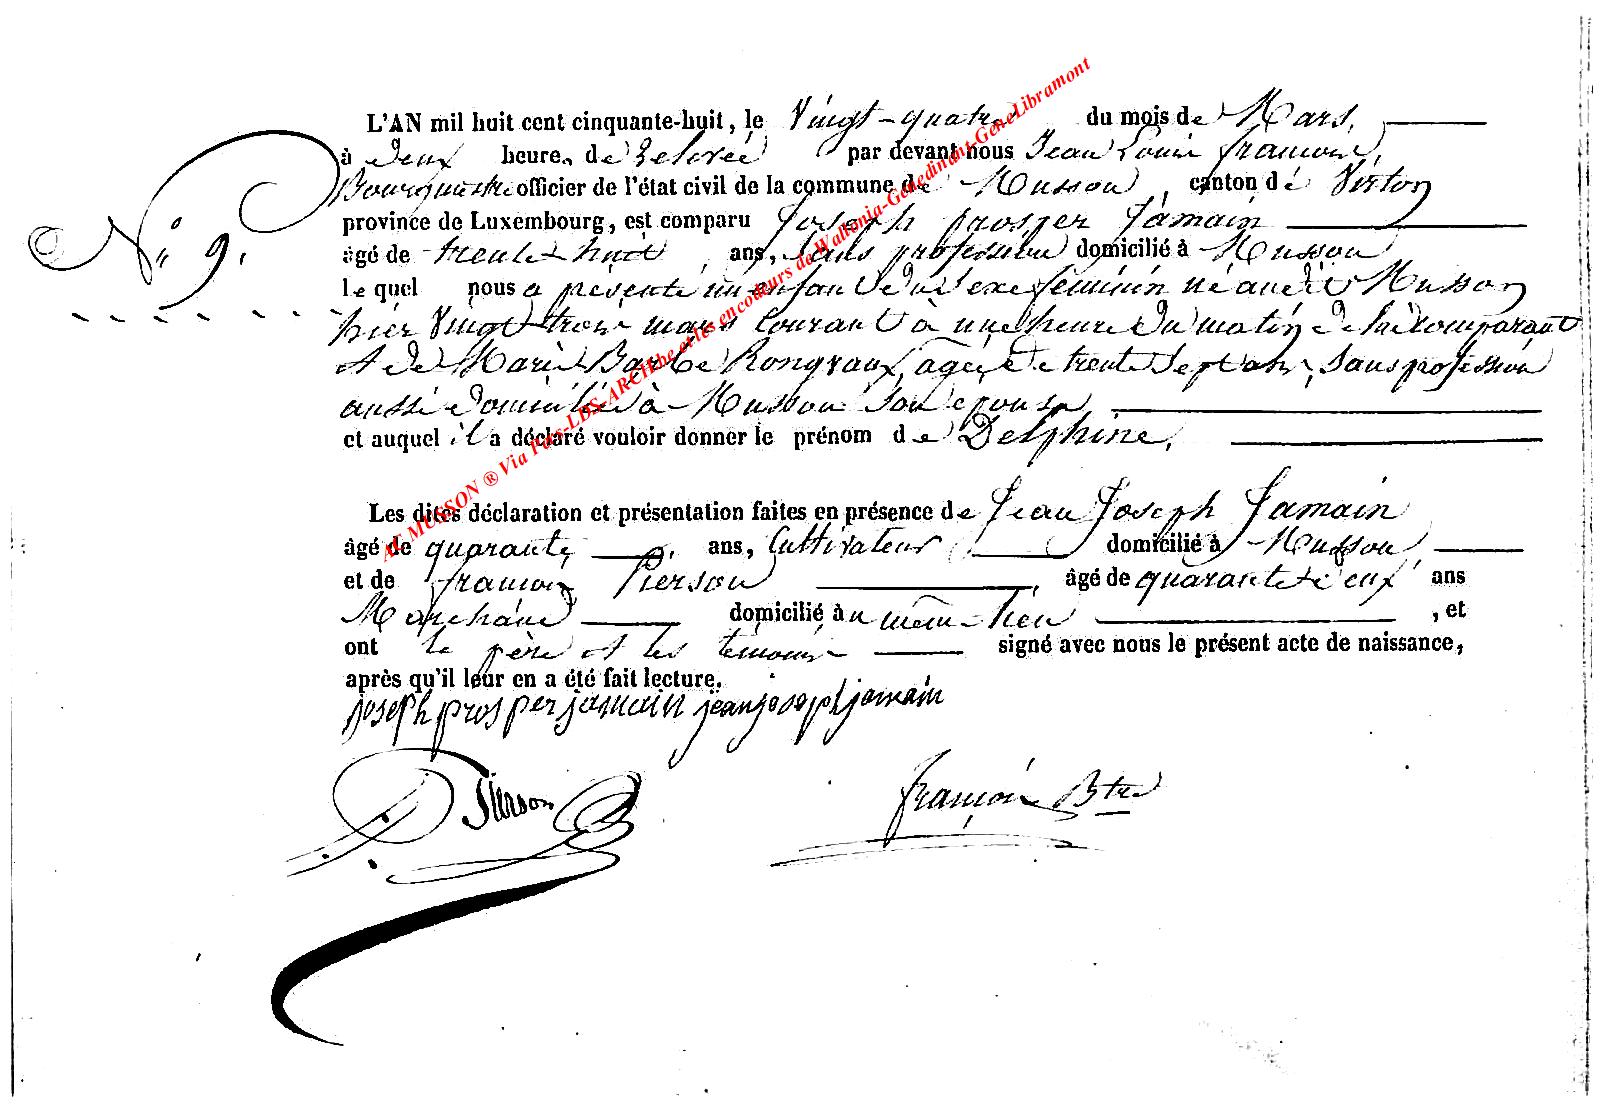 L'AN mil huit cent cinquante-huit, le Vingt-quatre du mois de Mars,
à deux heures de relevée par devant nous Jean Louis françois,
Bourgmestre officier de l'état civil de la commune de Musson, canton de Virton
N° 9.
province de Luxembourg, est comparu Joseph prosper Jamain
âgé de trente-huit ans, sans profession domicilié à Musson
le quel nous a présenté un enfant du sexe féminin né audit Musson
hier Vingt-trois mars Courant à une heure du matin de lui comparant
et de Marie Barbe Rongvaux, agée de trente sept ans, sans profession
aussi domiciliée à Musson son épouse
et auquel il a déclaré vouloir donner le prénom de Delphine.
Les dites déclaration et présentation faites en présence de Jean Joseph Jamain
âgé de quarante ans, Cultivateur domicilié à Musson
et de françois Pierson, âgé de quarante deux ans
Marchand domicilié au même-lieu, et
ont le père et les témoins signé avec nous le présent acte de naissance,
après qu'il leur en a été fait lecture.
joseph prosper jamain jean joseph jamain
Pierson
françois Btre
AC MUSSON ® Via Pars-LDS-ARCHbe et les encodeurs de Wallonia-Genedinant-GeneLibramont